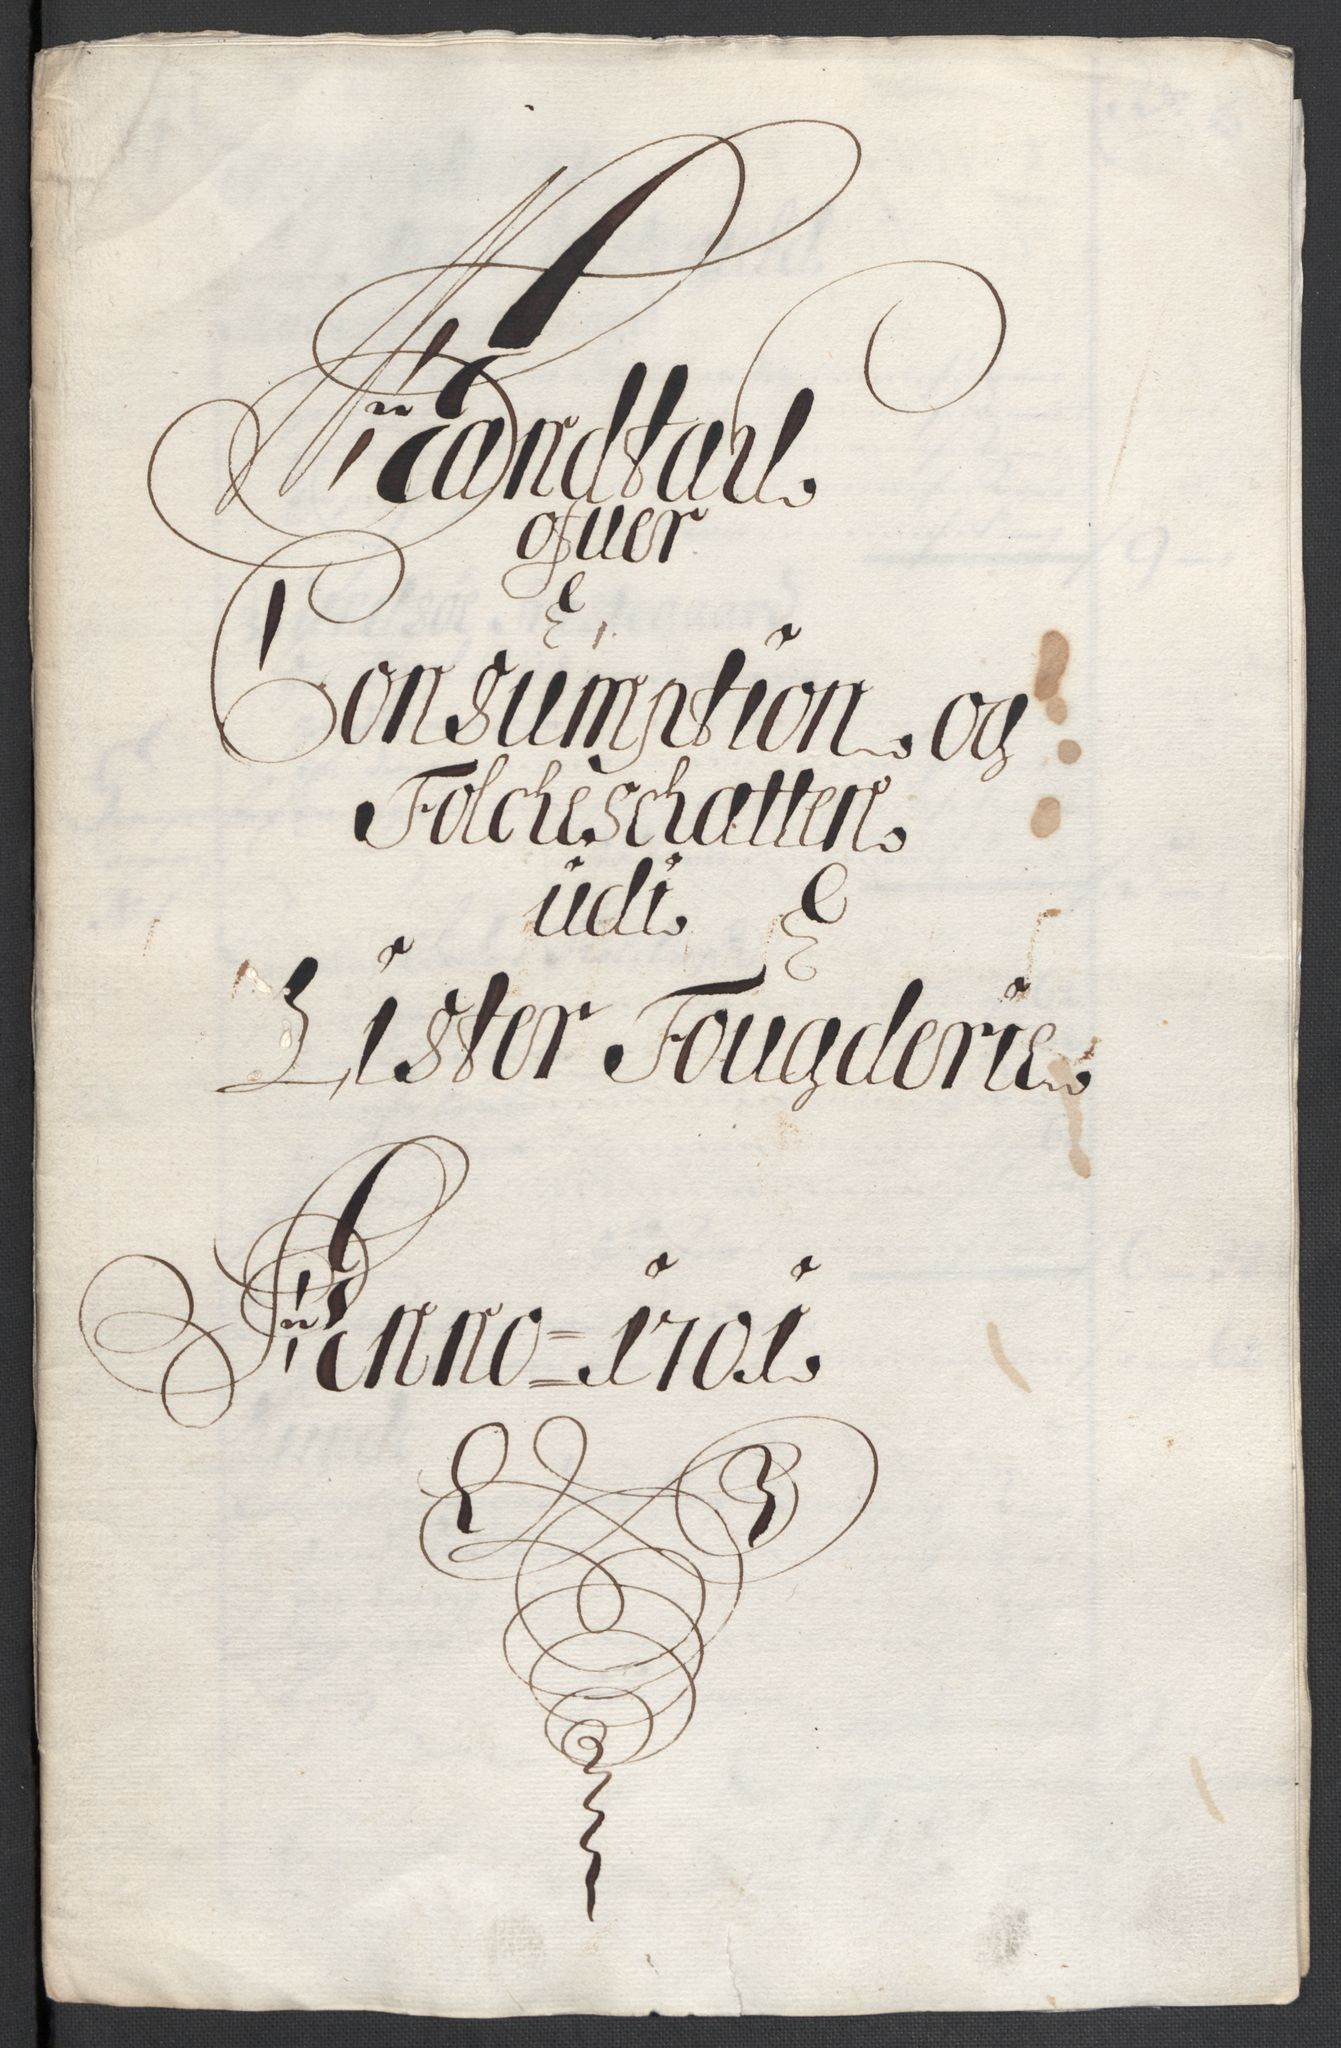 Mandtall
ofuer
Consumption og
Folcheschatten
udi
Lister Fougderie
Anno = 1701